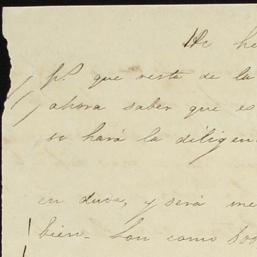 He he
pª que resta de la
ahora saber que es
se hará la diligen
en duda, y será me
bien_ Son como 800